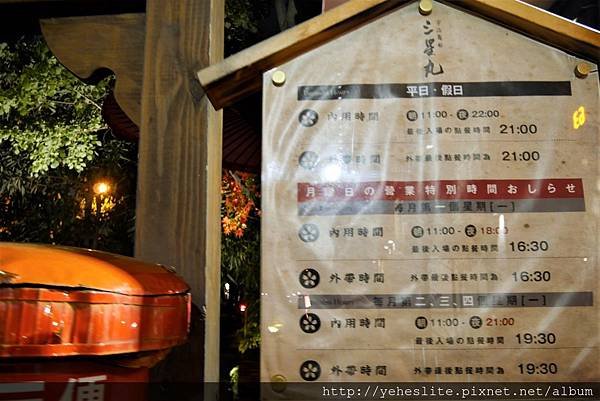 三星丸
平日・假日
內用時間 朝 11:00 - 夜 22:00
最後入場の點餐時間 21:00
外帶時間 外帶最後點餐時間為 21:00
月曜日の營業特別時間おしらせ
每月第一個星期[一]
內用時間 朝 11:00 - 夜 18:00
最後入場の點餐時間 16:30
外帶時間 外帶最後點餐時間為 16:30
每月第二、三、四個星期[一]
內用時間 朝 11:00 - 夜 21:00
最後入場の點餐時間 19:30
外帶時間 外帶最後點餐時間為 19:30
便
http://yeheslite.pixnet.net/album